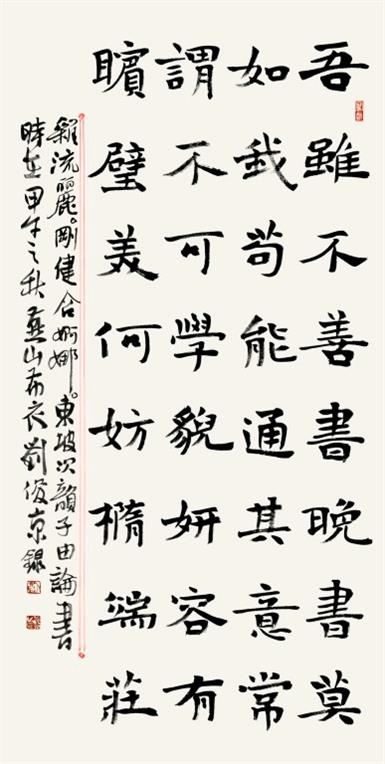 吾雖不善書晚書莫
如我苟能通其意常
謂不可學貌妍容有
矉璧美何妨橢端莊
雜流麗。剛健含婀娜。東坡次韻子由論書
時在甲午之秋燕山布衣劉俊京錄